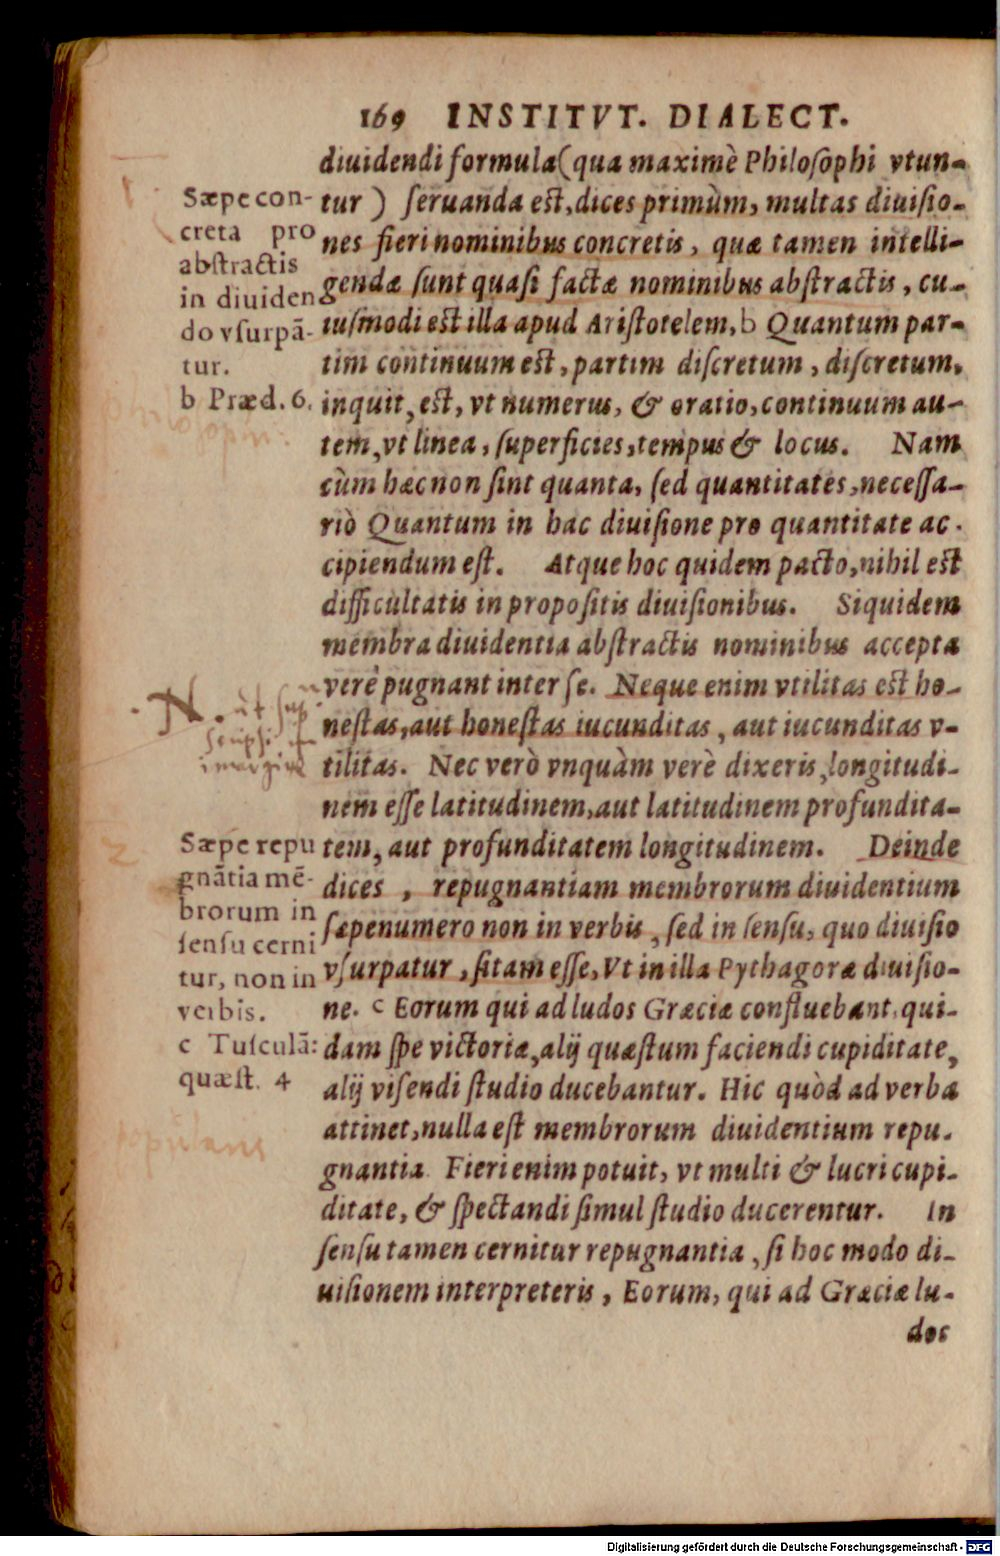 169 INSTITVT. DIALECT.
diuidendi formula (qua maximè Philosophi vtun-
tur) seruanda est, dices primùm, multas diuisio-
nes fieri nominibus concretis, quæ tamen intelli-
gendæ sunt quasi factæ nominibus abstractis, cu-
iusmodi est illa apud Aristotelem, b Quantum par-
tim continuum est, partim discretum, discretum,
inquit, est, vt numerus, & oratio, continuum au-
tem, vt linea, superficies, tempus & locus. Nam
cùm hæc non sint quanta, sed quantitates, necessa-
riò Quantum in hac diuisione pro quantitate ac-
cipiendum est. Atque hoc quidem pacto, nihil est
difficultatis in propositis diuisionibus. Siquidem
membra diuidentia abstractis nominibus accepta
verè pugnant inter se. Neque enim vtilitas est ho-
nestas, aut honestas iucunditas, aut iucunditas v-
tilitas. Nec verò vnquàm verè dixeris, longitudi-
nem esse latitudinem, aut latitudinem profundita-
tem, aut profunditatem longitudinem. Deinde
dices, repugnantiam membrorum diuidentium
sæpenumero non in verbis, sed in sensu, quo diuisio
vsurpatur, sitam esse, Vt in illa Pythagoræ diuisio-
ne. c Eorum qui ad ludos Græciæ confluebant, qui-
dam spe victoriæ, alij quæstum faciendi cupiditate,
alij visendi studio ducebantur. Hic quòd ad verba
attinet, nulla est membrorum diuidentium repu-
gnantia. Fieri enim potuit, vt multi & lucri cupi-
ditate, & spectandi simul studio ducerentur. In
sensu tamen cernitur repugnantia, si hoc modo di-
uisionem interpreteris, Eorum, qui ad Græciæ lu-
dos
Sæpe con-
creta pro
abstractis
in diuiden
do vsurpã-
tur.
b Præd. 6.
N. ut sup.
in margine
Sæpe repu
gnãtia mẽ-
brorum in
sensu cerni
tur, non in
verbis.
c Tusculã:
quæst. 4
2
popularis
Digitalisierung gefördert durch die Deutsche Forschungsgemeinschaft - DFG